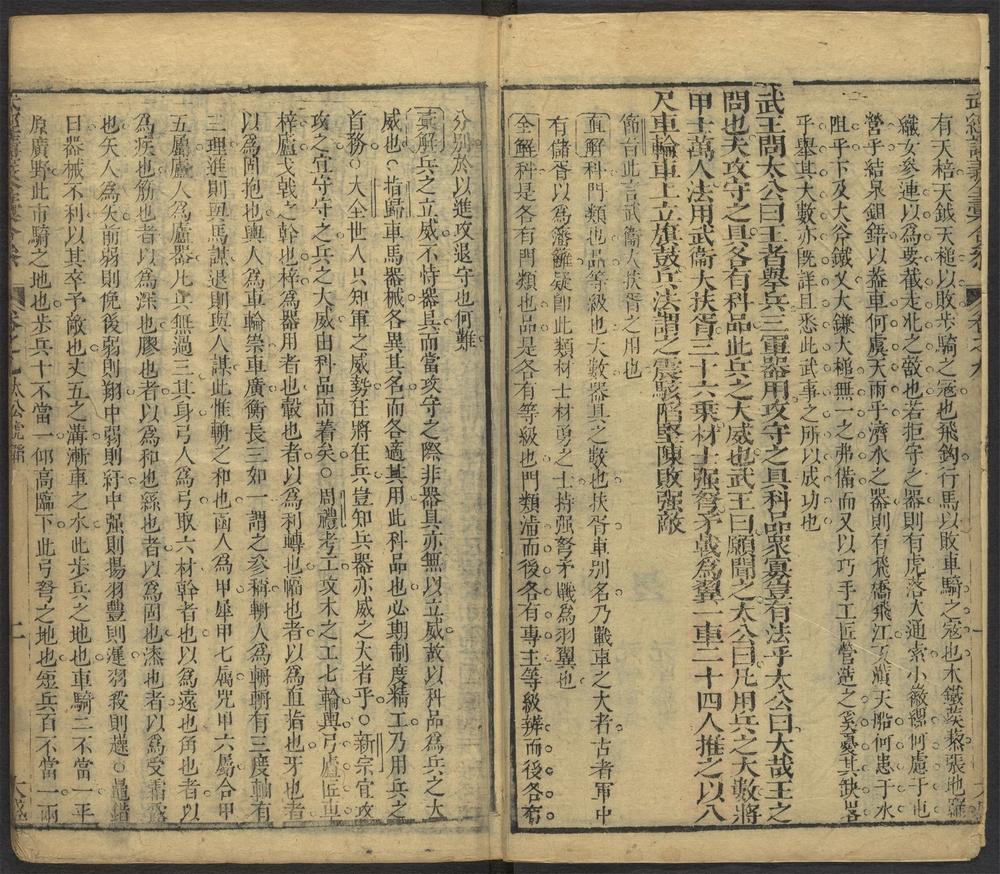 武經講義全彙合參 卷之九
有天棓天鉞天槌以敗步騎之寇也飛鈎行馬以敗車騎之寇也木鐵蒺藜張地羅
織女參連以爲要截走北之彀也若拒守之器則有虎落大通索小徽縲何慮于屯
營乎結臬鉏鋙以葢車何虞天雨乎濟水之器則有飛橋飛江天潢天船何患于水
阻乎下及大斧鐵叉大鐮大槌無一之弗備而又以巧手工匠營造之奚憂其缺畧
乎舉其大數亦旣詳且悉此武事之所以成功也
武王問太公曰王者舉兵三軍器用攻守之具科品衆寡豈有法乎太公曰大哉王之
問也夫攻守之具各有科品此兵之大威也武王曰願聞之太公曰凡用兵之大數將
甲士萬人法用武衞大扶胥三十六乘材士强弩矛戟爲翼一車二十四人推之以八
尺車輪車上立旗鼓兵法謂之震駭陷堅陳敗强敵
節旨此言武衞大扶胥之用也
直解科門類也品等級也大數器具之數也扶胥車别名乃戰車之大者古者軍中
有儲胥以爲藩籬疑卽此類材士材勇之士持强弩矛戟爲羽翼也
全解科是各有門類也品是各有等級也門類淸而後各有專主等級辨而後各有
分别於以進攻退守也何難
彙解兵之立威不恃器具而當攻守之際非器具亦無以立威故以科品爲兵之大
威也○指歸車馬器械各異其名而各適其用此科品也必期制度精工乃用兵之
首務○大全世人只知軍之威勢在將在兵豈知兵器亦威之大者乎○新宗宜攻
攻之宜守守之兵之大威由科品而著矣○周禮考工攻木之工七輪輿弓廬匠車
梓廬戈戟之幹也梓爲器用者也轂也者以爲利轉也輻也者以爲直指也牙也者
以爲固抱也輿人爲車輪崇車廣衡長三如一謂之參稱輈人爲輈輈有三度軸有
三理進則與馬謀退則與人謀此惟輈之和也函人爲甲犀甲七屬兕甲六屬合甲
五屬廬人爲廬器凡兵無過三其身弓人爲弓取六材幹者也以爲遠也角也者以
爲疾也筋也者以爲深也膠也者以爲和也絲也者以爲固也漆也者以爲受霜露
也矢人爲矢前弱則俛後弱則翔中弱則紆中强則揚羽豐則遲羽殺則趮○鼂錯
曰器械不利以其卒予敵也丈五之溝漸車之水此步兵之地也車騎二不當一平
原廣野此車騎之地也步兵十不當一仰高臨下此弓弩之地也短兵百不當一兩
卷之九 太公虎韜 二 大盛